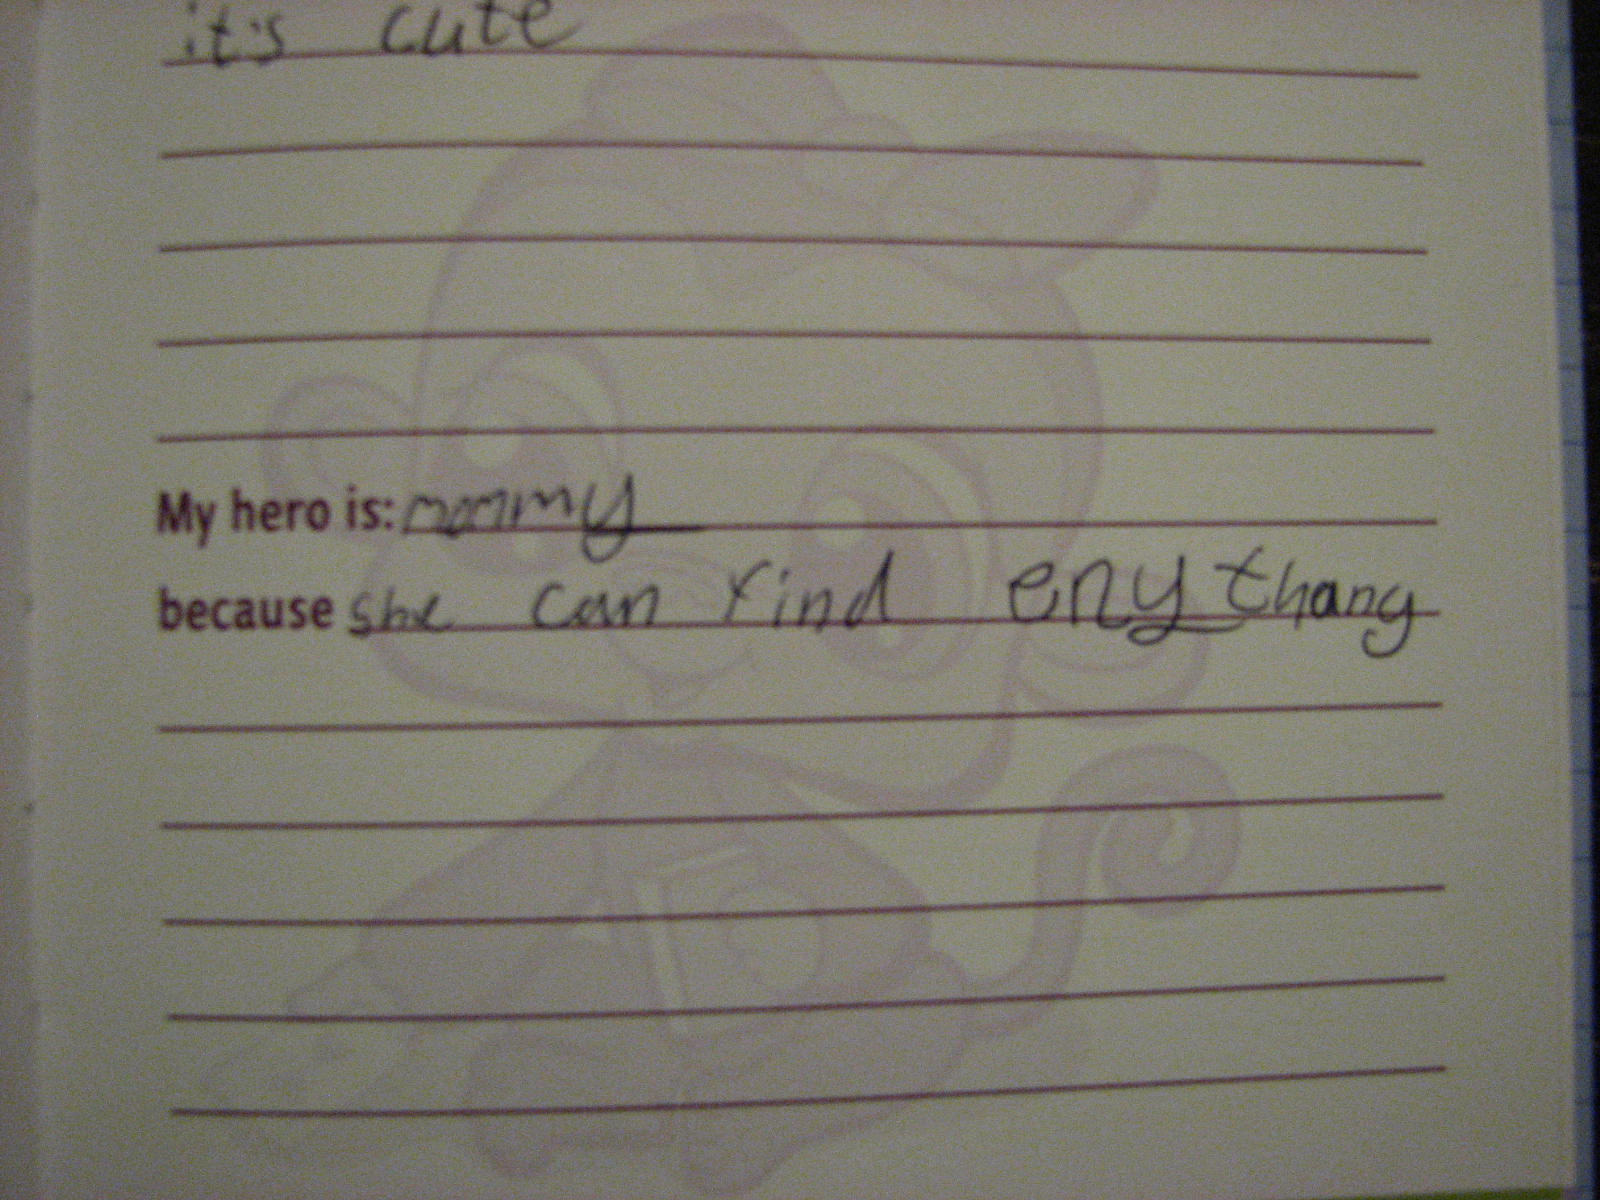 it's cute
My hero is: mommy
because she can find eny thang